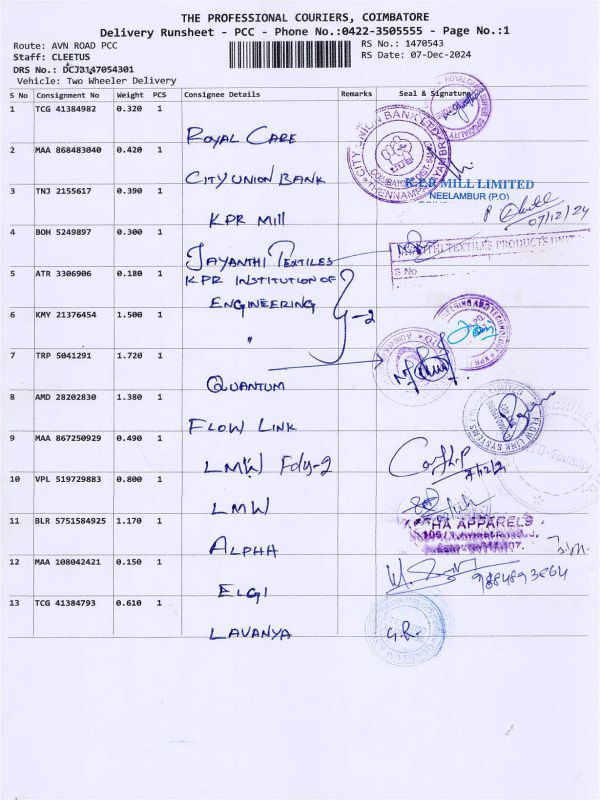 THE PROFESSIONAL COURIERS, COIMBATORE
Delivery Runsheet - PCC - Phone No.:0422-3505555 - Page No.:1
Route: AVN ROAD PCC
RS No.: 1470543
Staff: CLEETUS
RS Date: 07-Dec-2024
DRS No.: DCJ3147054301
Vehicle: Two Wheeler Delivery
S No Consignment No Weight PCS Consignee Details Remarks Seal & Signature
1 TCG 41384982 0.320 1
ROYAL CARE
2 MAA 868483040 0.420 1
CITY UNION BANK
CITY UNION BANK LTD
3 TNJ 2155617 0.390 1
KPR Mill
K.P.R MILL LIMITED
NEELAMBUR (P.O)
07/12/24
4 BOH 5249897 0.300 1
JAYANTHI TEXTILES
TEXTILES PRODUCTS UNIT
S No
5 ATR 3306906 0.180 1
KPR INSTITUTION OF
ENGINEERING
-2
6 KMY 21376454 1.500 1
"
7 TRP 5041291 1.720 1
QUANTUM
8 AMD 28202830 1.380 1
FLOW LINK
FLOW LINK SYSTEMS
9 MAA 867250929 0.490 1
LMW Fdy-2
10 VPL 519729883 0.800 1
LMW
11 BLR 5751584925 1.170 1
ALPHA
HA APPARELS
12 MAA 108042421 0.150 1
ELGI
9884893864
13 TCG 41384793 0.610 1
LAVANYA
G.R.